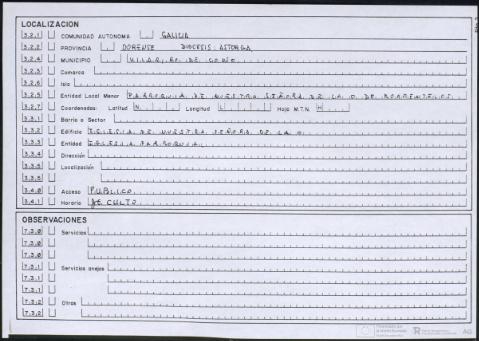 LOCALIZACION
3.2.1 COMUNIDAD AUTONOMA GALICIA
3.2.2 PROVINCIA OORENSE DIOCESIS-ASTORGA
3.2.4 MUNICIPIO VILARIÑO DE CONSO
3.2.3 Comarca
3.2.6 Isla
3.2.5 Entidad Local Menor PARROQUIA DE NUESTRA SEÑORA DE LA O DE
3.2.7 Coordenadas: Latitud N Longitud L Hoja M.T.N. H
3.3.1 Barrio o Sector
3.3.2 Edificio IGLESIA DE NUESTRA SEÑORA DE LA O
3.3.3 Entidad IGLESIA PARROQUIAL
3.3.4 Dirección
3.3.5 Localización
3.3.5
3.4.0 Acceso PUBLICO
3.4.1 Horario DE CULTO
OBSERVACIONES
7.3.0 Servicios
7.3.0
7.3.0
7.3.1 Servicios anejos
7.3.1
7.3.1
7.3.2 Otros
7.3.2